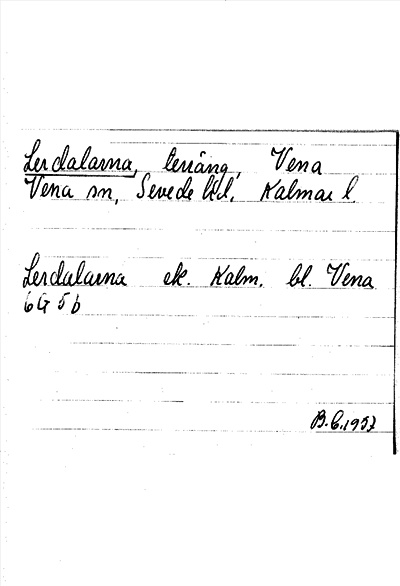 Lerdalarna, terräng, Vena
Vena sn, Sevede hd. Kalmar l.
Lerdalarna ek. Kalm. bl. Vena
6G 5b